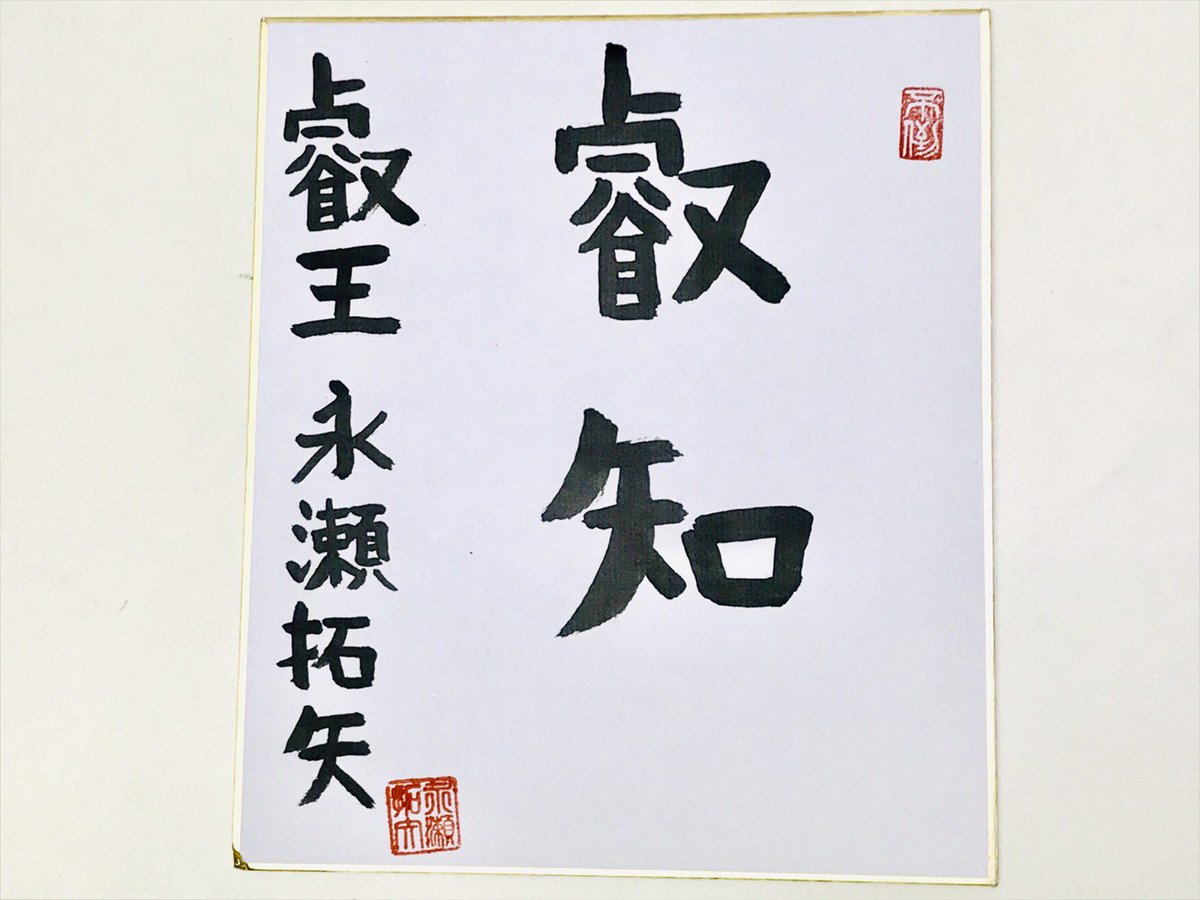 叡知
叡王 永瀬拓矢
永瀬拓矢